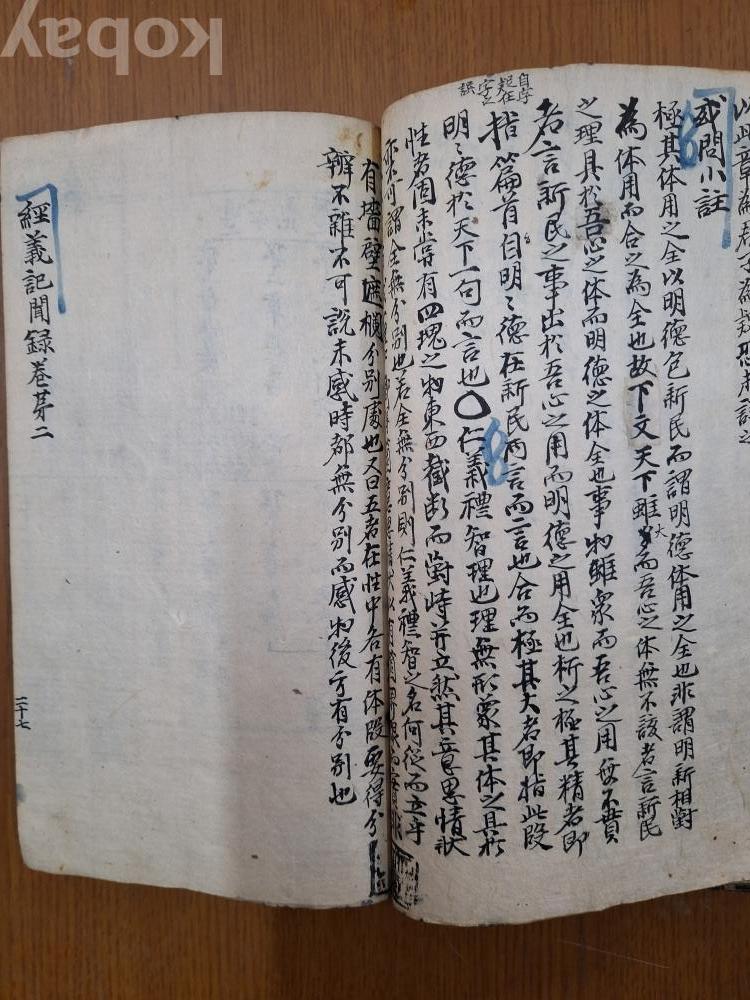 kobay
自字
起在
字之
誤
以此章為
或問小註
極其体用之全以明德包新民而謂明德体用之全也非謂明新相對
為体用而合之為全也故下文天下雖大而吾心之体無不該者言新民
之理具於吾心之体而明德之体全也事物雖衆而吾心之用無不貫
者言新民之事出於吾心之用而明德之用全也析之極其精者即
指篇首自明〻德在新民両言而二言也合而極其大者即指此段
明〻德於天下一句而言也〇仁義禮智理也理無形象其体之具於
性者固未嘗有四塊之物東西截断而對峙并立然其意思情状
亦不可謂全無分別也若全無分別則仁義禮智之名何從而立乎
有墻壁遮欄分別處也又曰五者在性中各有体段要得分
辨不雜不可說未感時都無分別而感物後方有分別也
經義記聞録卷苐二
二十七